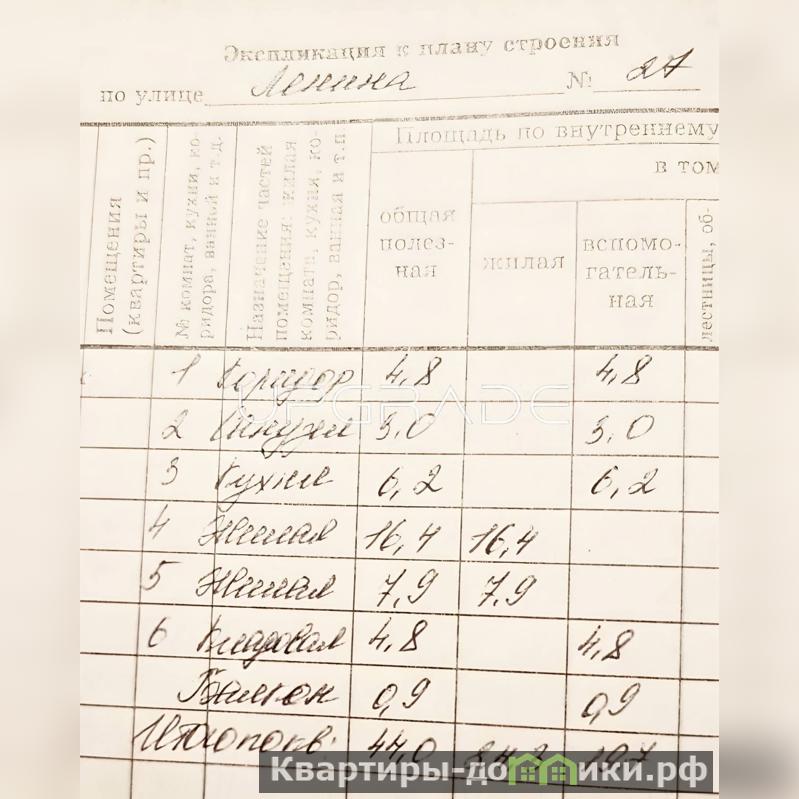 Экспликация к плану строения
по улице Ленина № 27
Помещения
(квартиры и пр.)
№ комнат, кухни, ко-
ридора, ванной и т.д.
Назначение частей
помещения: жилая
комната, кухня, ко-
ридор, ванная и т.п
Площадь по внутреннему
в том
общая
полез-
ная
жилая
вспомо-
гатель-
ная
лестницы, об-
1 Коридор 4,8 4,8
2 Санузел 3,0 3,0
3 Кухня 6,2 6,2
4 Жилая 16,4 16,4
5 Жилая 7,9 7,9
6 Кладовая 4,8 4,8
Балкон 0,9 0,9
Итого по кв: 44,0
UPGRADE
Квартиры-домики.рф